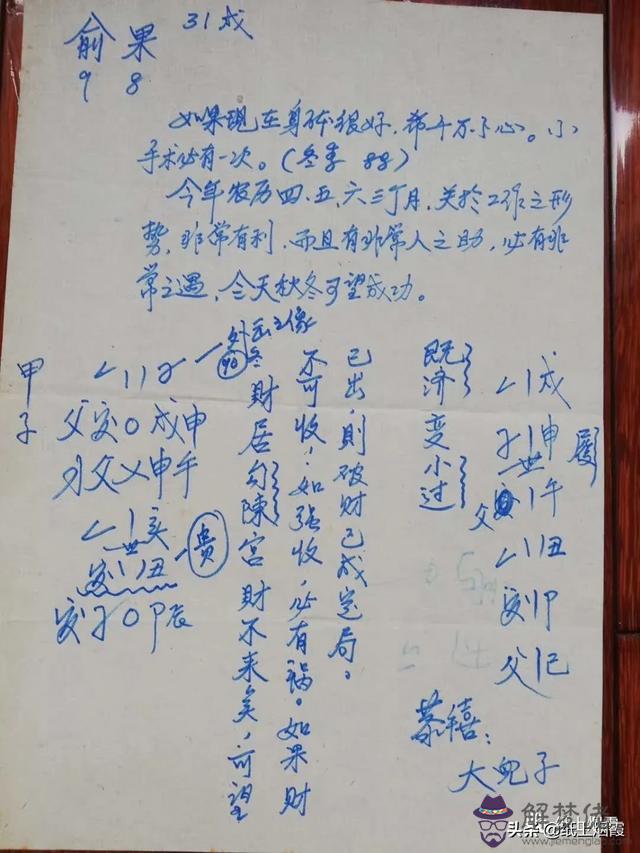 俞果 31戌
9 8
如果现在身体很好,希千万小心。小
手术必有一次。(冬季 88)
今年农历四、五、六三个月,关於工作之形
势,非常有利,而且有非常人之助,必有非
常之遇,今天秋冬可望成功。
甲子
父 0 戌申
父乂申午
世亥
丑
贵
0 卯辰
90
冬
財居勾陳宫財不来矣,可望
不可收,如强收,必有祸。如果財
已出,則破財已成定局。
既济变小过
戌
申
世
父 午
丑
卯
父 巳
恭禧:
大 子
解梦佬
www.jiemenglao.com
头条@纸上烟霞